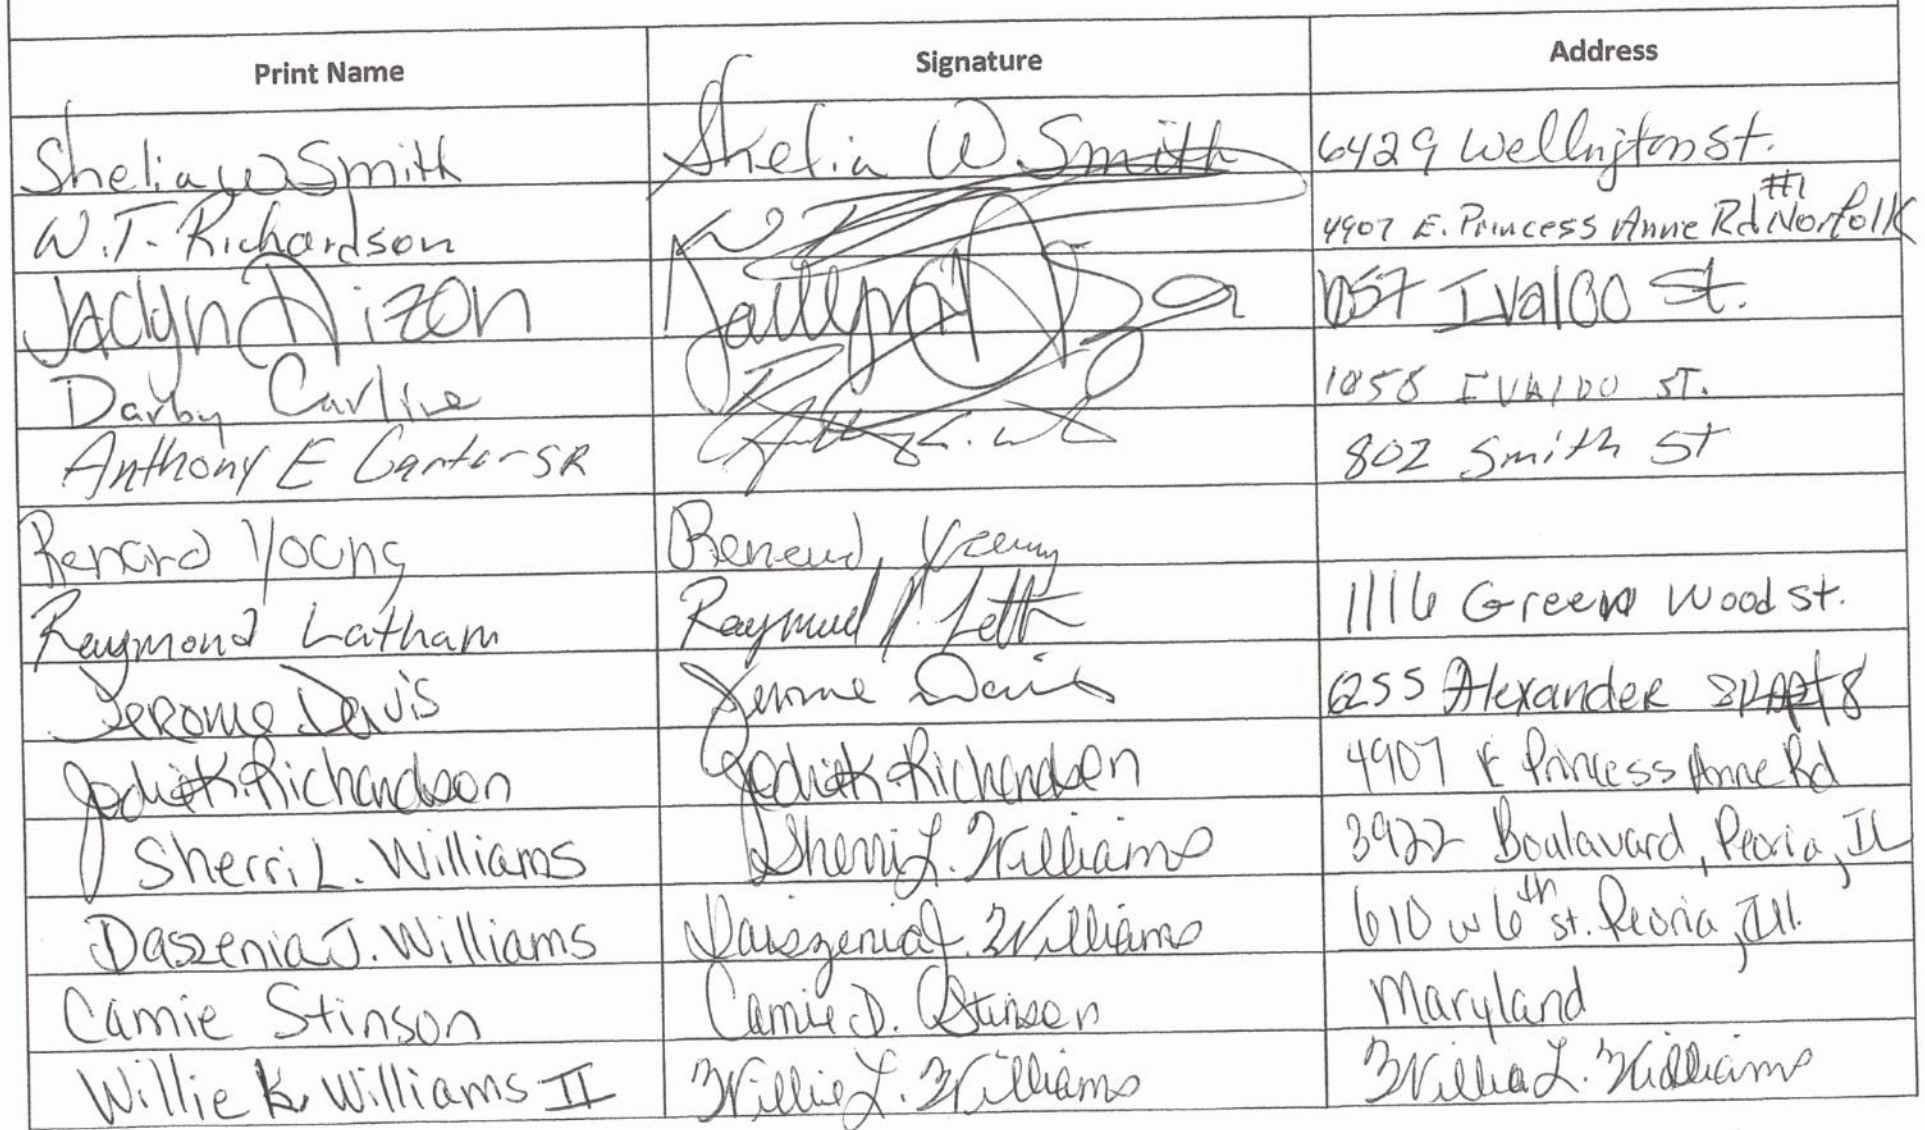 Print Name Signature Address
Shelia W Smith Shelia W. Smith 6429 Wellington St.
W.T. Richardson W 4907 E. Princess Anne Rd #1 Norfolk
Jaclyn Dizon 1057 Ivaloo St.
Darby Carline 1058 IVALOO ST.
Anthony E Canter SR 802 Smith St
Renard Young Renard Young
Raymond Latham Raymond 1116 Green Wood St.
Jerome Davis Jerome Davis 6255 Alexander St Apt 8
Jodie K. Richardson Jodie K. Richardson 4907 E Princess Anne Rd
Sherri L. Williams Sherri L. Williams 3922 Boulavard, Peoria, IL
Daszenia J. Williams Daiszenia J. Williams 610 W 6th St. Peoria, Ill.
Camie Stinson Camie D. Stinson Maryland
Willie K Williams II Willie L. Williams Willie L. Williams